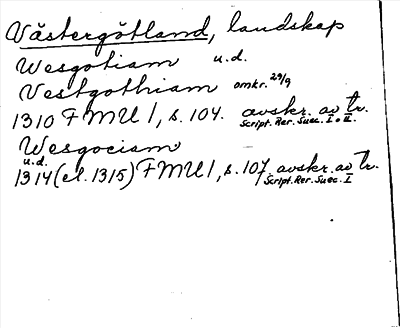 Västergötland, landskap
Wesgotiam u.d.
Vestgothiam omkr. 29/9
1310 FMU 1, s. 104. avskr. av tr.
Script. Rer. Suec. I o II.
Wesgociam
u.d.
1314 (el. 1315) FMU 1, s. 107. avskr. av tr.
Script. Rer. Suec. I